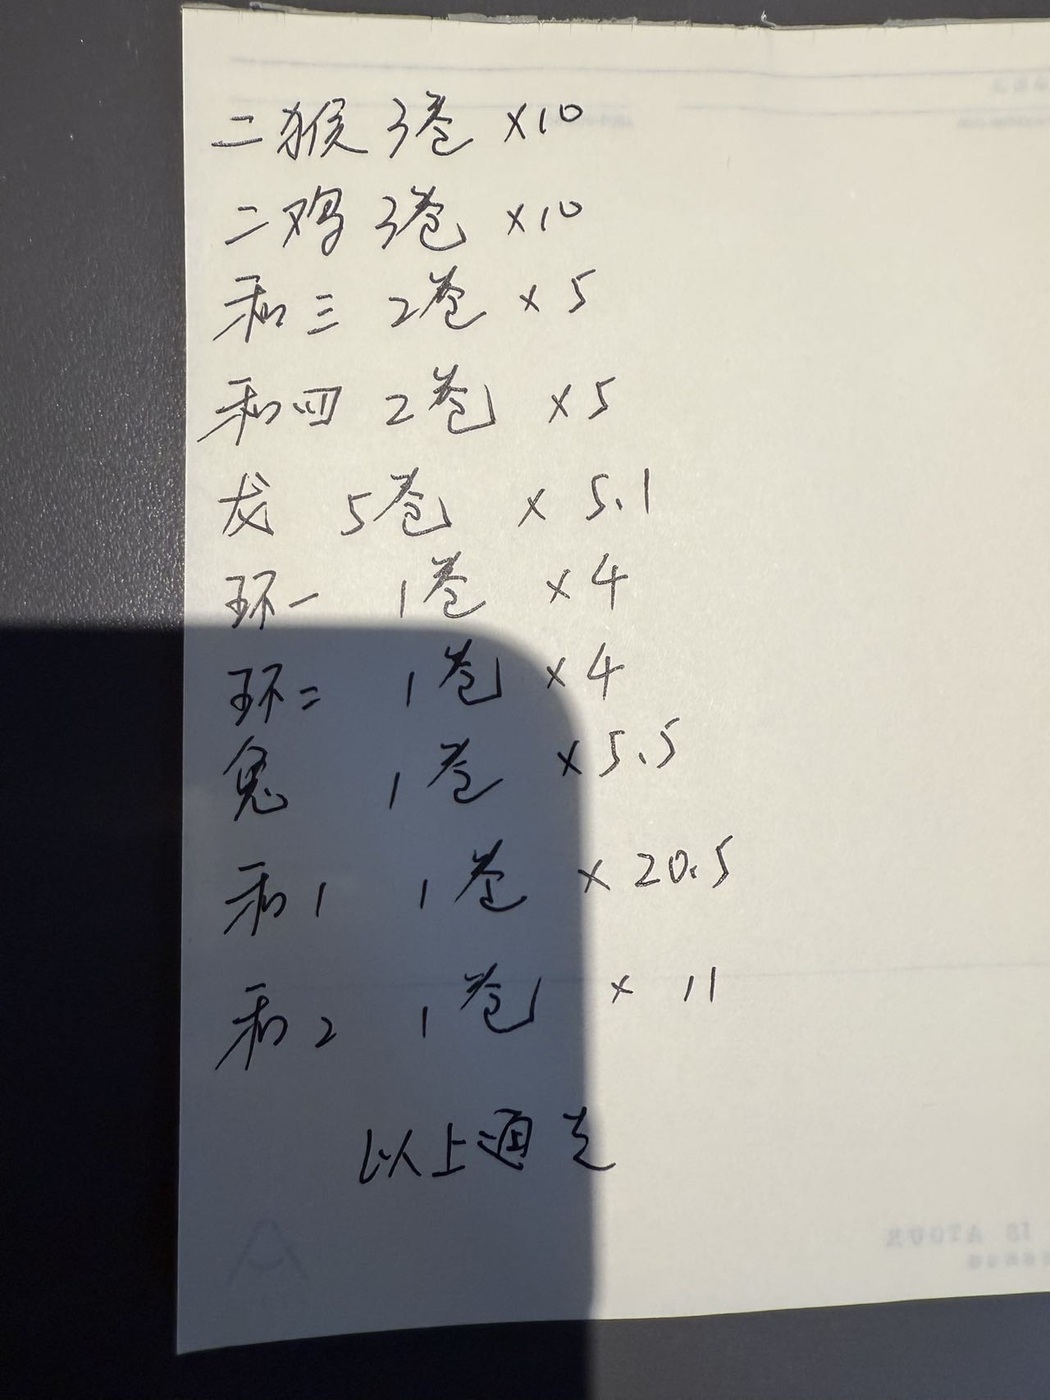 二猴 3卷 ×10
二鸡 3卷 ×10
和三 2卷 ×5
和四 2卷 ×5
龙 5卷 ×5.1
环一 1卷 ×4
环二 1卷 ×4
兔 1卷 ×5.5
和1 1卷 ×20.5
和2 1卷 ×11
以上通走